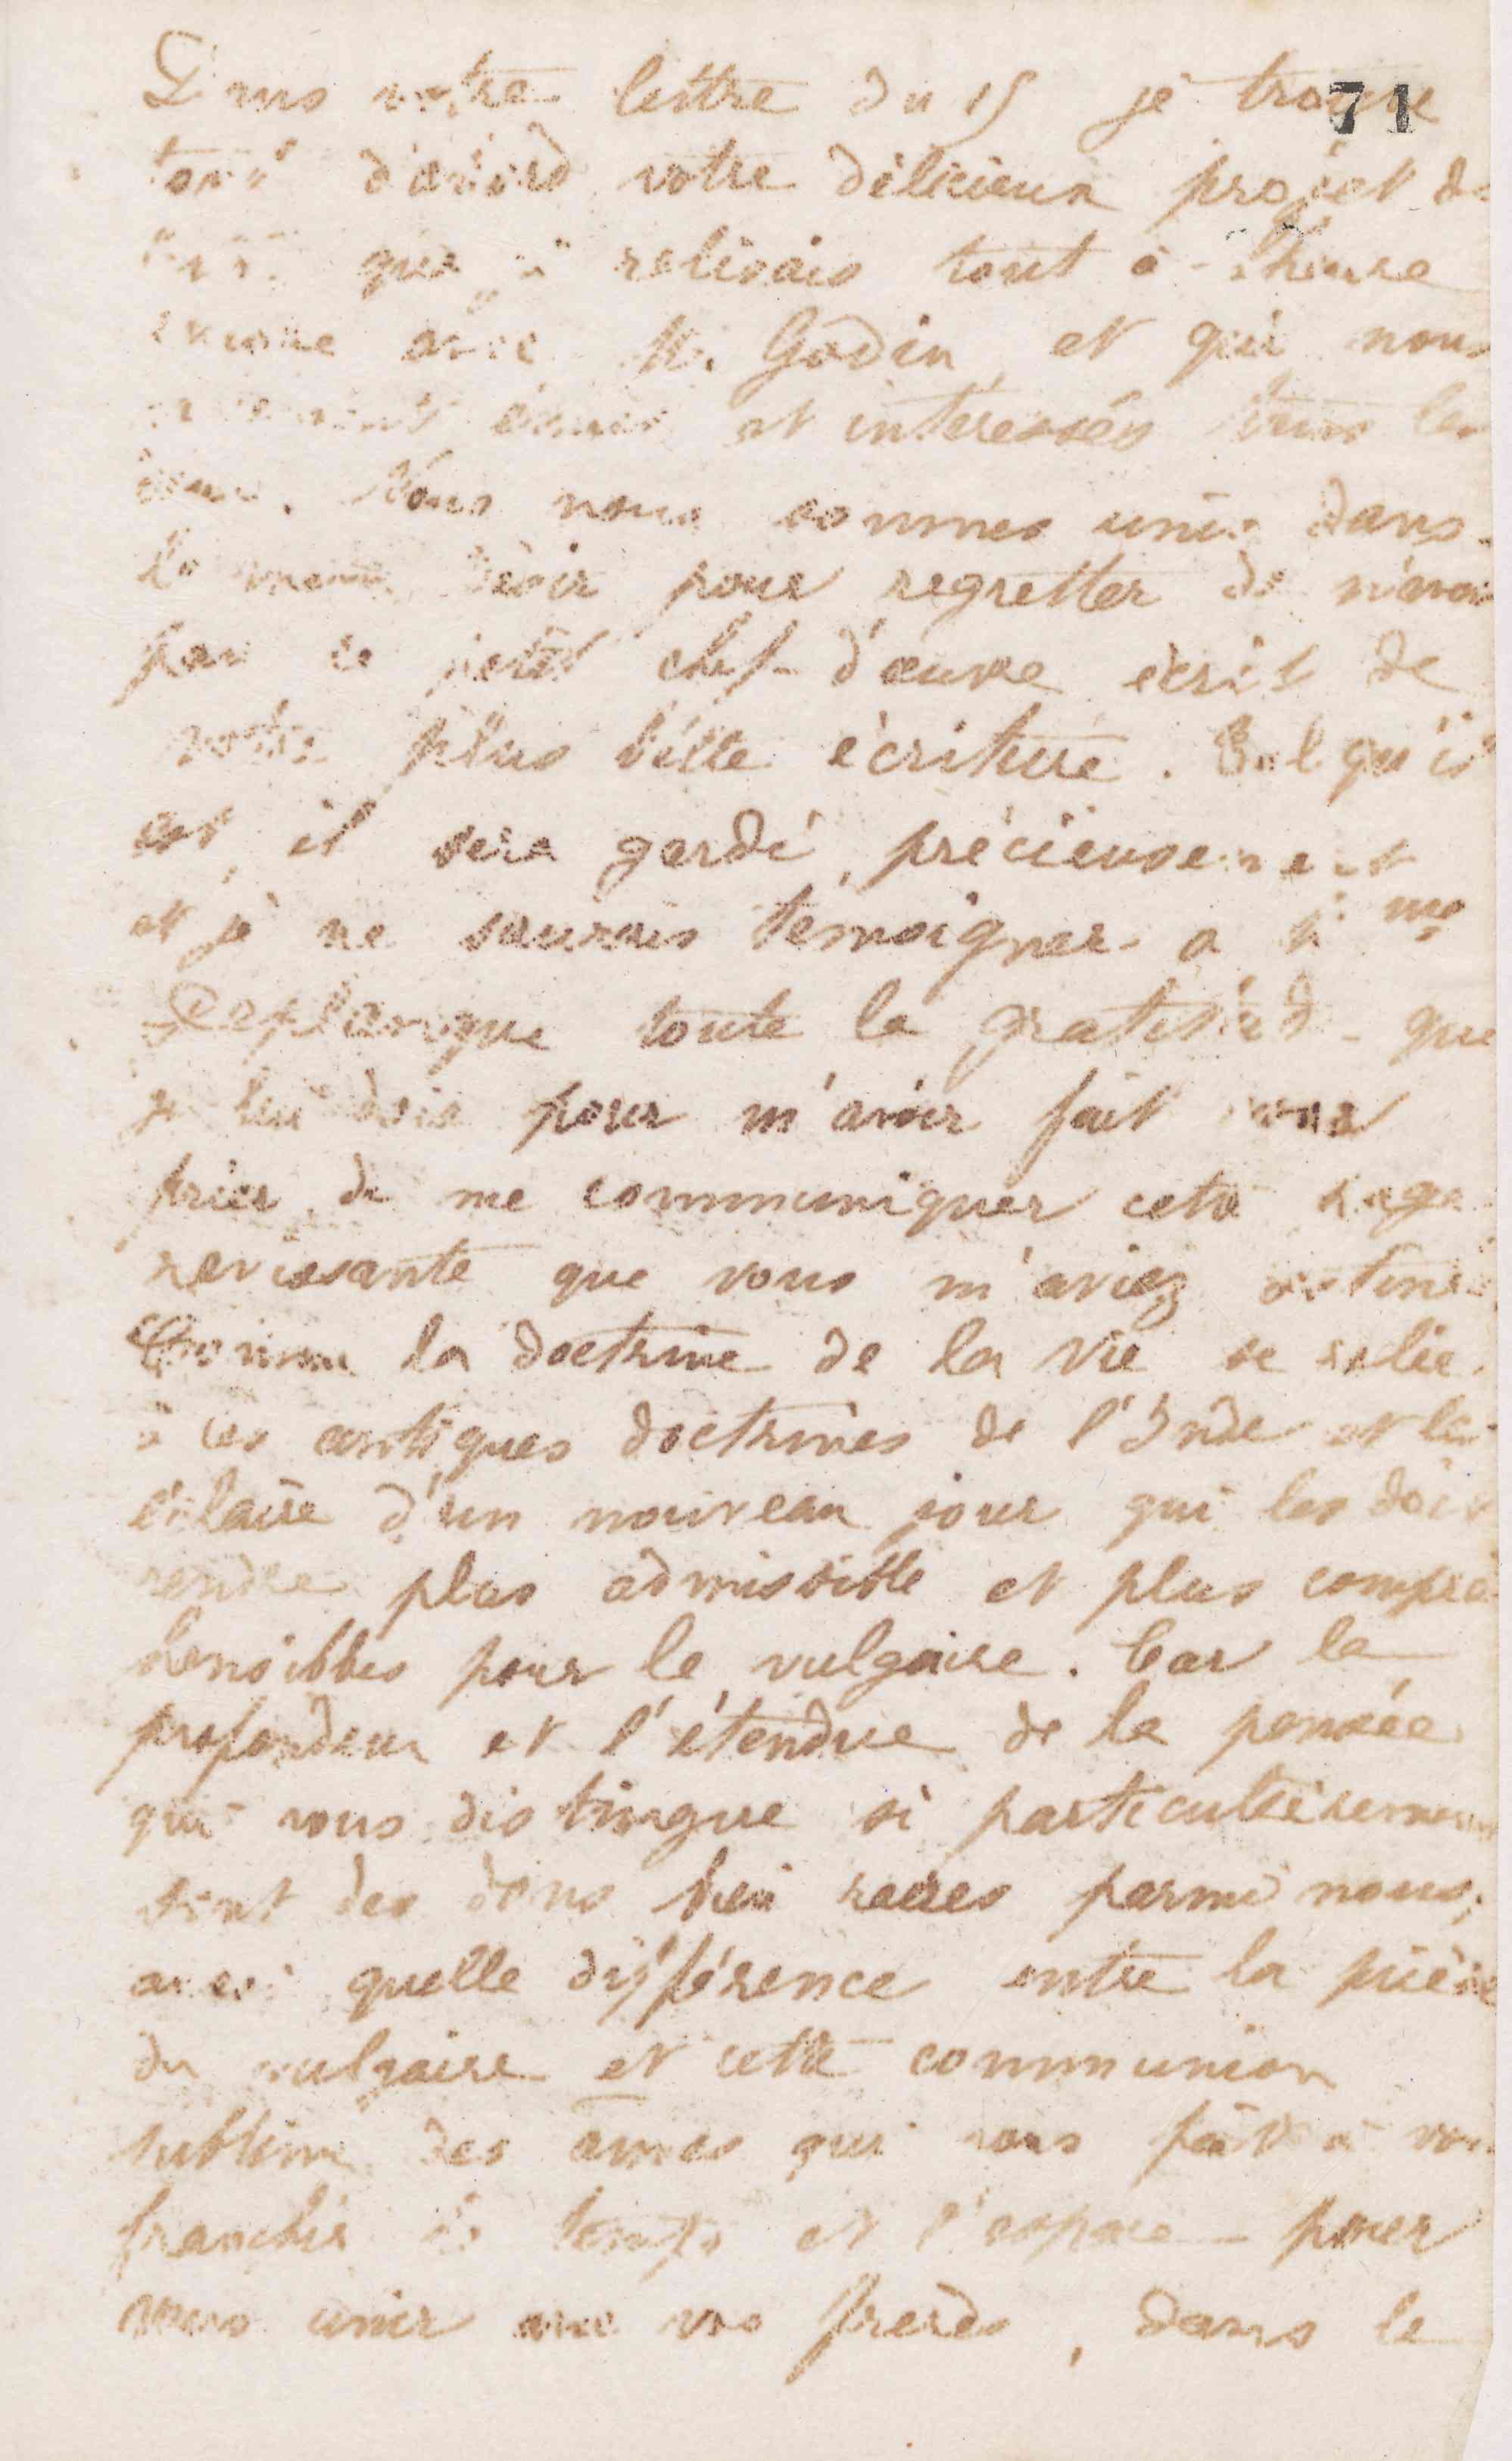 71
Dans votre lettre du 15 je trouve
tout d'abord votre délicieux projet de
que je relisais tout à l'heure
encore avec M. Godin et qui nous
émus et intéressés tous les
deux. Nous nous sommes unis dans
le même désir pour regretter de n'avoir
pas ce petit chef-d'œuvre écrit de
votre plus belle écriture. Tel qu'il
est, il sera gardé précieusement
et je ne saurais témoigner à Mme
Deplanque toute la gratitude que
je lui dois pour m'avoir fait vous
prier de me communiquer cette page
ravissante que vous m'aviez destinée
Comme la doctrine de la vie se relie
à ces antiques doctrines de l'Inde et les
éclaire d'un nouveau jour qui les doit
rendre plus admissible et plus compré
hensibles pour le vulgaire. Car la
profondeur et l'étendue de la pensée
qui vous distingue si particulièrement
sont des dons bien rares parmi nous;
aussi quelle différence entre la prière
du vulgaire et cette communion
sublime des âmes qui vous fait à vous
franchir le temps et l'espace pour
vous unir avec vos frères, dans le